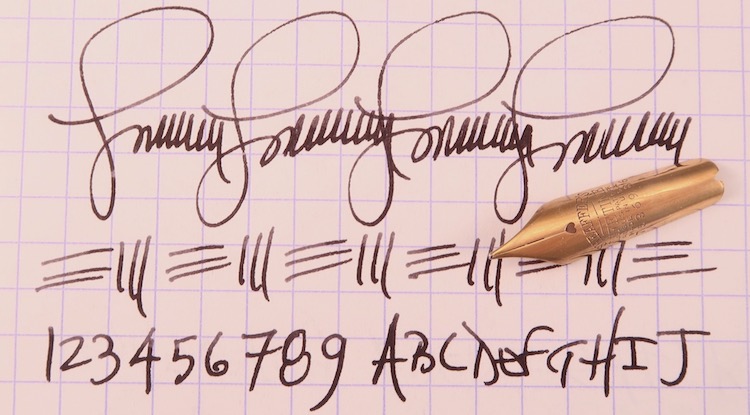 123456789 ABCDefGHIJ